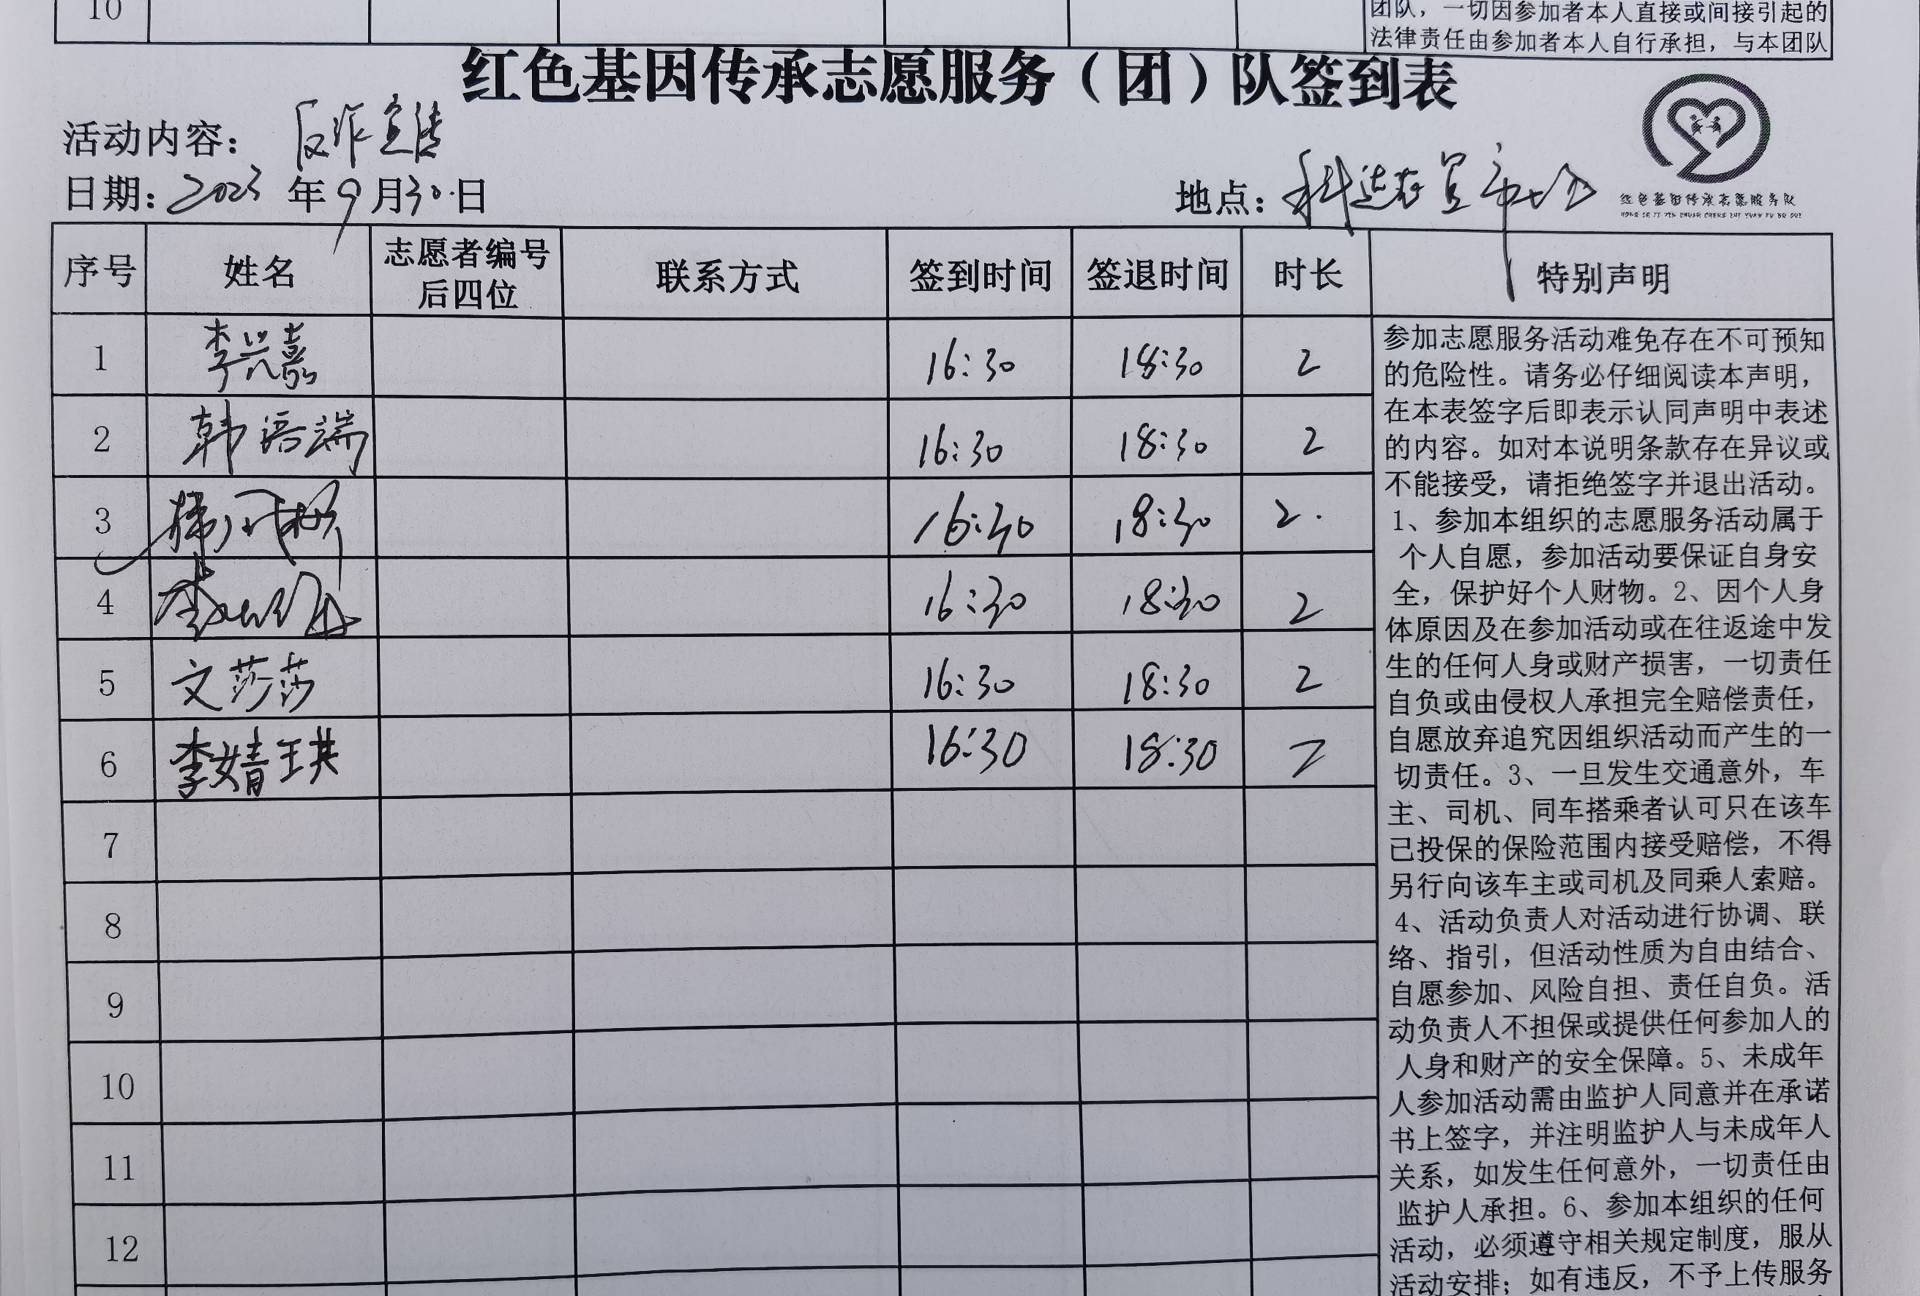 10
团队，一切因参加者本人直接或间接引起的
法律责任由参加者本人自行承担，与本团队
红色基因传承志愿服务（团）队签到表
活动内容： 反诈宣传
日期: 2023 年 9 月 30 日
地点:
红色基因传承志愿服务队
序号 姓名 志愿者编号后四位 联系方式 签到时间 签退时间 时长 特别声明
1 李兴嘉 16:30 18:30 2
2 韩语端 16:30 18:30 2
3 16:30 18:30 2.
4 16:30 18:30 2
5 文莎莎 16:30 18:30 2
6 李婧珙 16:30 18:30 2
7
8
9
10
11
12
参加志愿服务活动难免存在不可预知
的危险性。请务必仔细阅读本声明，
在本表签字后即表示认同声明中表述
的内容。如对本说明条款存在异议或
不能接受，请拒绝签字并退出活动。
1、参加本组织的志愿服务活动属于
个人自愿，参加活动要保证自身安
全，保护好个人财物。2、因个人身
体原因及在参加活动或在往返途中发
生的任何人身或财产损害，一切责任
自负或由侵权人承担完全赔偿责任，
自愿放弃追究因组织活动而产生的一
切责任。3、一旦发生交通意外，车
主、司机、同车搭乘者认可只在该车
已投保的保险范围内接受赔偿，不得
另行向该车主或司机及同乘人索赔。
4、活动负责人对活动进行协调、联
络、指引，但活动性质为自由结合、
自愿参加、风险自担、责任自负。活
动负责人不担保或提供任何参加人的
人身和财产的安全保障。5、未成年
人参加活动需由监护人同意并在承诺
书上签字，并注明监护人与未成年人
关系，如发生任何意外，一切责任由
监护人承担。6、参加本组织的任何
活动，必须遵守相关规定制度，服从
活动安排；如有违反，不予上传服务